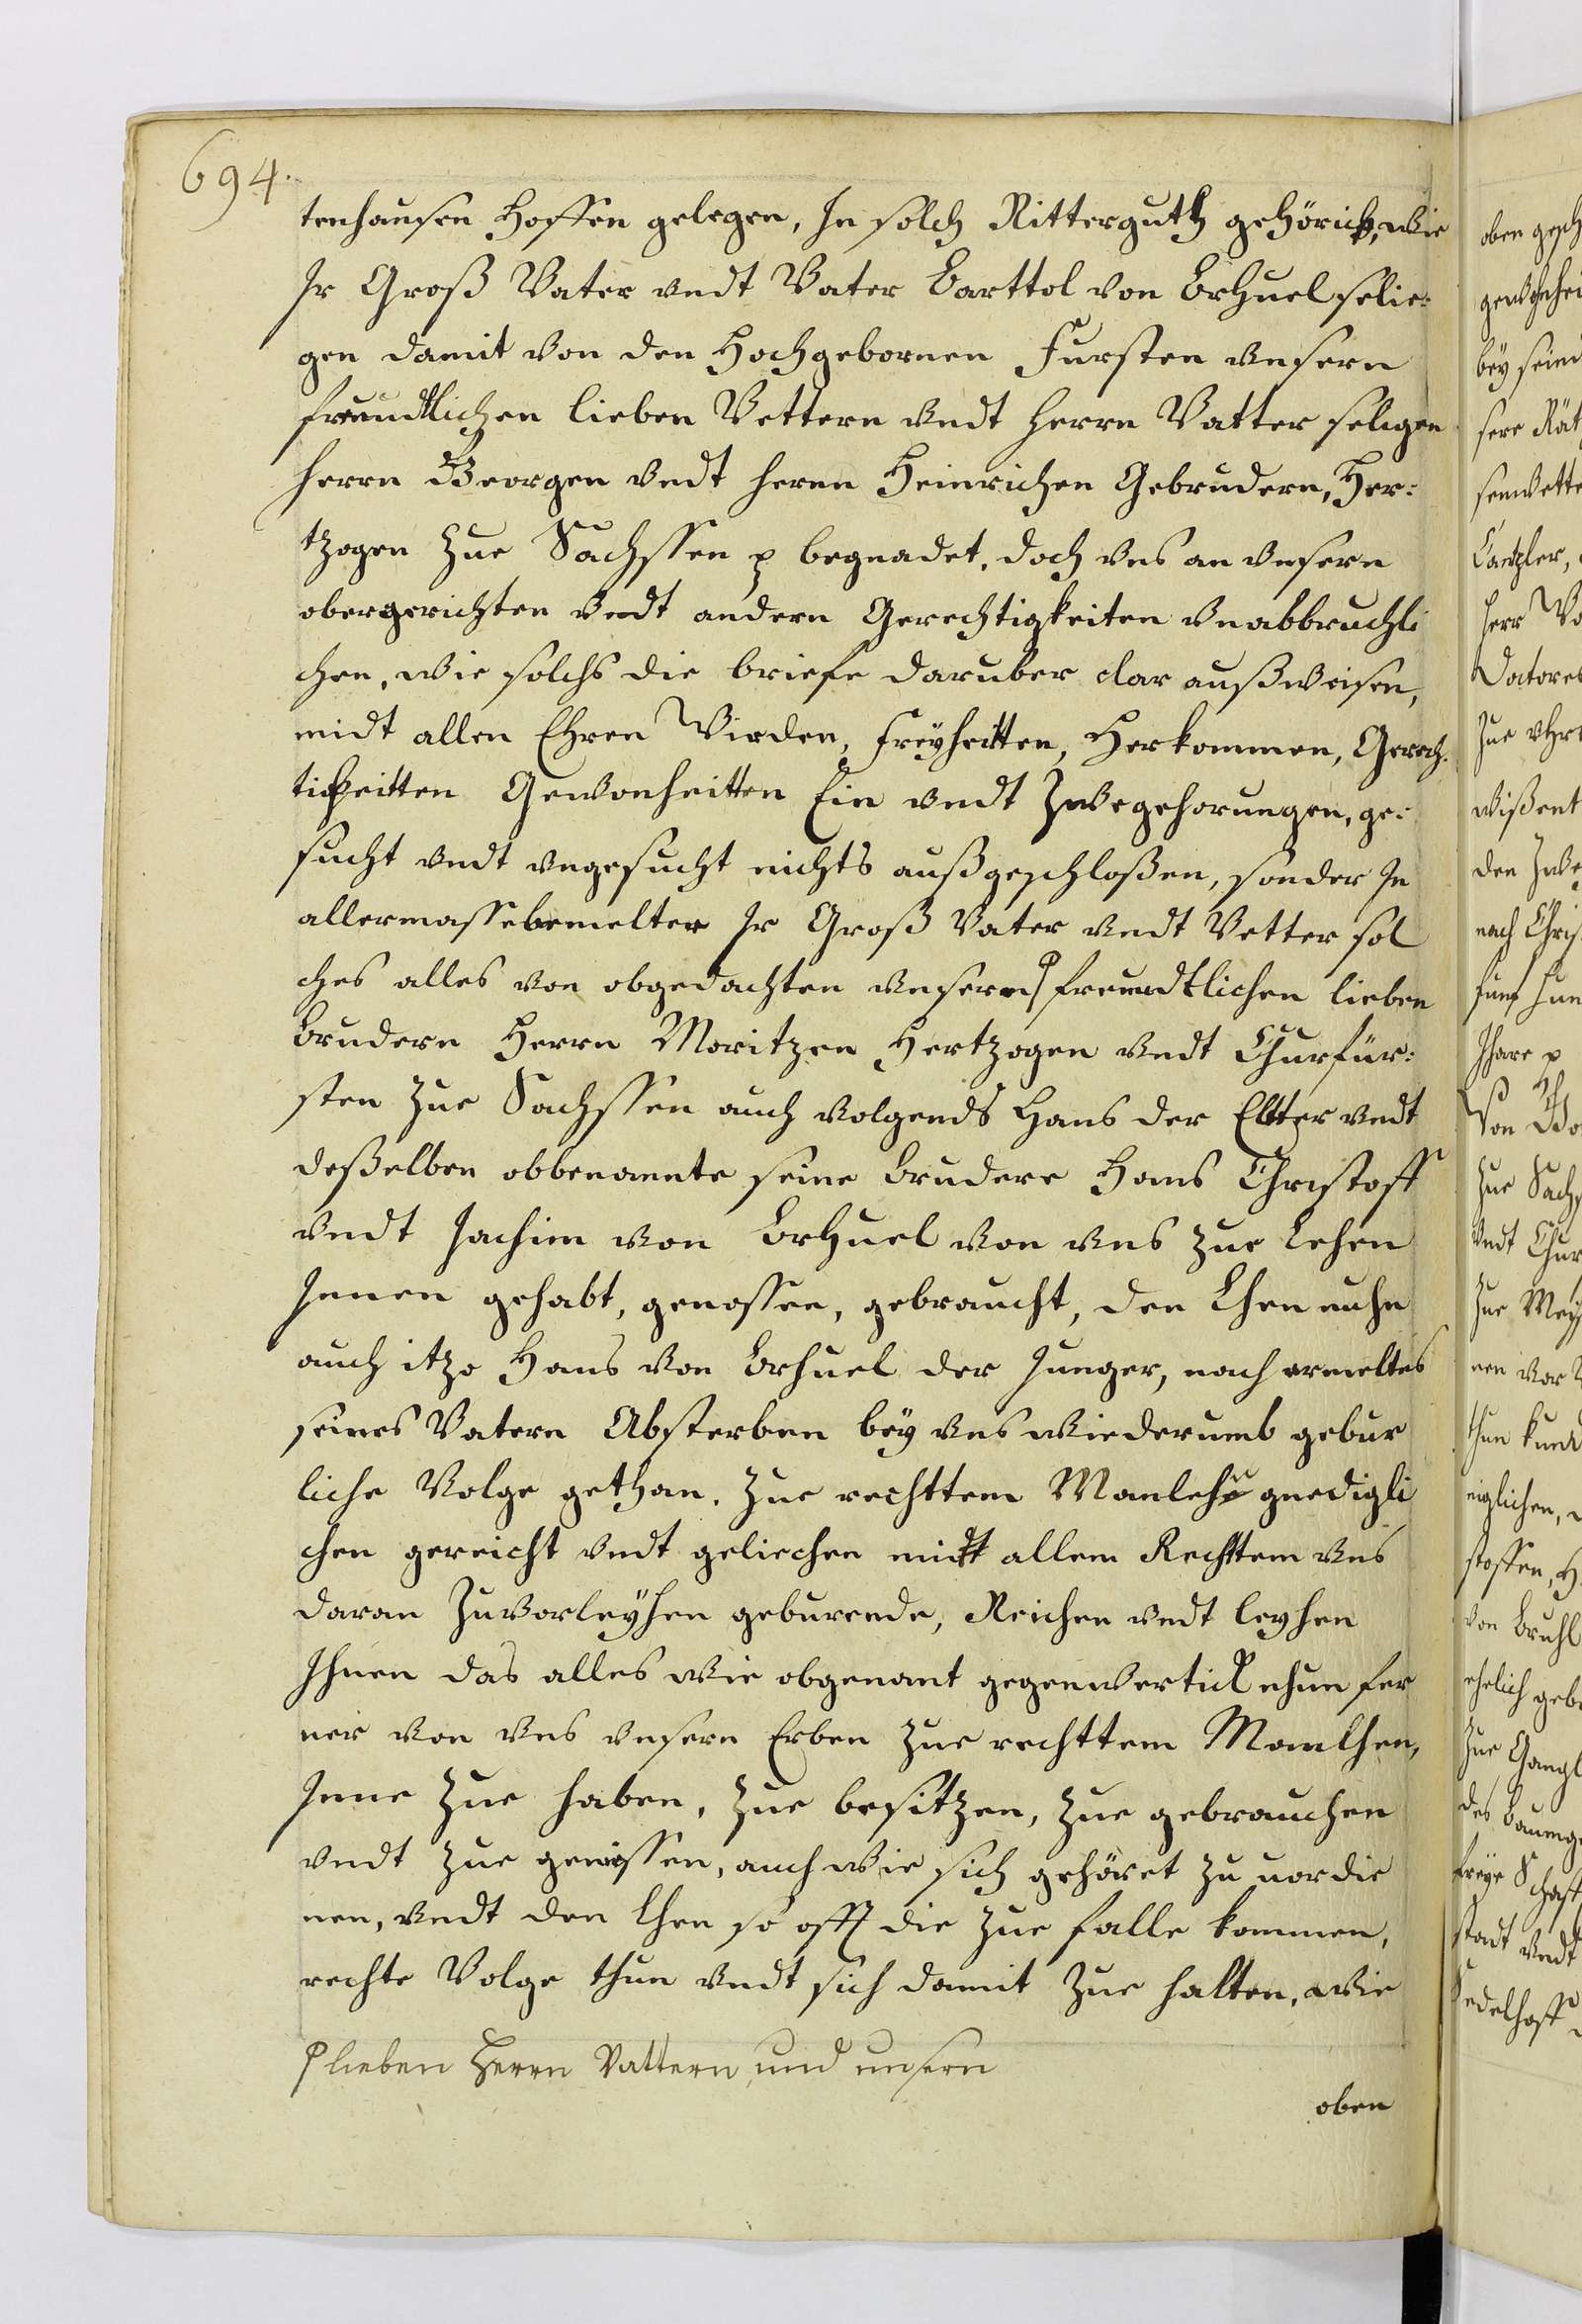 694.
tenhausen Hoffen gelegen, In solch Ritterguth gehörick, wie
Ir Groß Vater vndt Vater Barttol von Brhuel selie-
gen damit von den Hochgebornen Fursten vnsern
freundtlichen lieben Vettern vndt Herrn Vatter seligen
Herrn Georgen vndt Herrn Heinrichen Gebrudern, Her-
tzogen zue Sachssen p begnadet, doch vns an vnsern
obergerichten vndt andern Gerechtigkeiten vnabbruchli
chen, wie solchs die briefe daruber clar außweisen,
midt allen Ehren Wirden, Freyheitten, Herkommen, Gerech-
tickeitten Gewonheitten Ein vndt Zubegehorungen, ge-
sucht vndt vngesucht nichts außgeschloßen, sonder In
allermassebemelter Ir Groß Vater vndt Vetter sol
ches alles von obgedachten vnsern freundtlichen lieben
Brudern Herrn Moritzen Hertzogen vndt Churfür-
sten zue Sachssen auch volgends Hans der Eltter vndt
deßelben obbenannte seine Brudere Hans Christoff
vndt Jachim von Brhuel von vns zue Lehen
Innen gehabt, genossen, gebraucht, den Lhen nuhn
auch itzo Hans von Brhuel der Junger, nach ermeltes
seines Vatern Absterben bey vns wiederumb gebur
liche Volge gethan. Zue rechttem Manlehn gnedigli
chen gereicht vndt geliechen midt allem Rechttem vns
daran zuvorleyhen geburende, Reichen vndt leyhen
Ihnen das alles wie obgenant gegenwertick nhun fer
ner von vns vnsern Erben zue rechttem Manlhen,
Inne zue haben, zue besitzen, zue gebrauchen
vndt zue geniessen, auch wie sich gehöret zu uordie
nen, vndt den Lhen so offt die zue falle kommen,
rechte Volge thun vndt sich damit zue halten, wie
lieben Herrn Vattern und unsern
oben
oben gesch
gewonhei
bey sein
sere Rät
senwette
Cantzler,
Herr Vo
Datores
zue vhr
wißent
den Zwe
nach Chris
funf hun
Ihare p
Von
zue Sachs
vndt Chur
zue Mey
nen vor
thun kund
niglichen,
stoffen, H
von Bruhl
ehelich geb
zue Gangl
des Baumg
freye Schaft
stadt vndt
sedelhoff